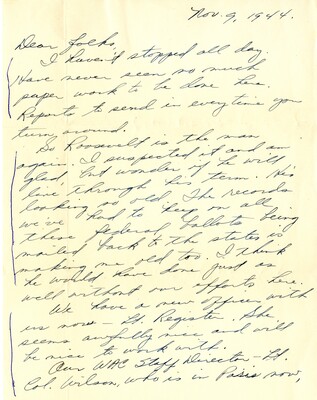 Nov. 9, 1944.
Dear Folks,
I haven't stopped all day.
Have never seen so much
paper work to be done here.
Reports to send in everytime you
turn around.
So Roosevelt is the man
again. I suspected it and am
glad but wonder if he will
live through his term. His
looking so old. The records
we've had to keep on all
these federal ballots being
mailed back to the states is
making me old too. I think
he would have done just as
well without our efforts here.
We have a new officer with
us now – Lt. Register. She
seems awfully nice and will
be nice to work with.
Our WAC Staff Director – Lt.
Col. Wilson, who is in Paris now,